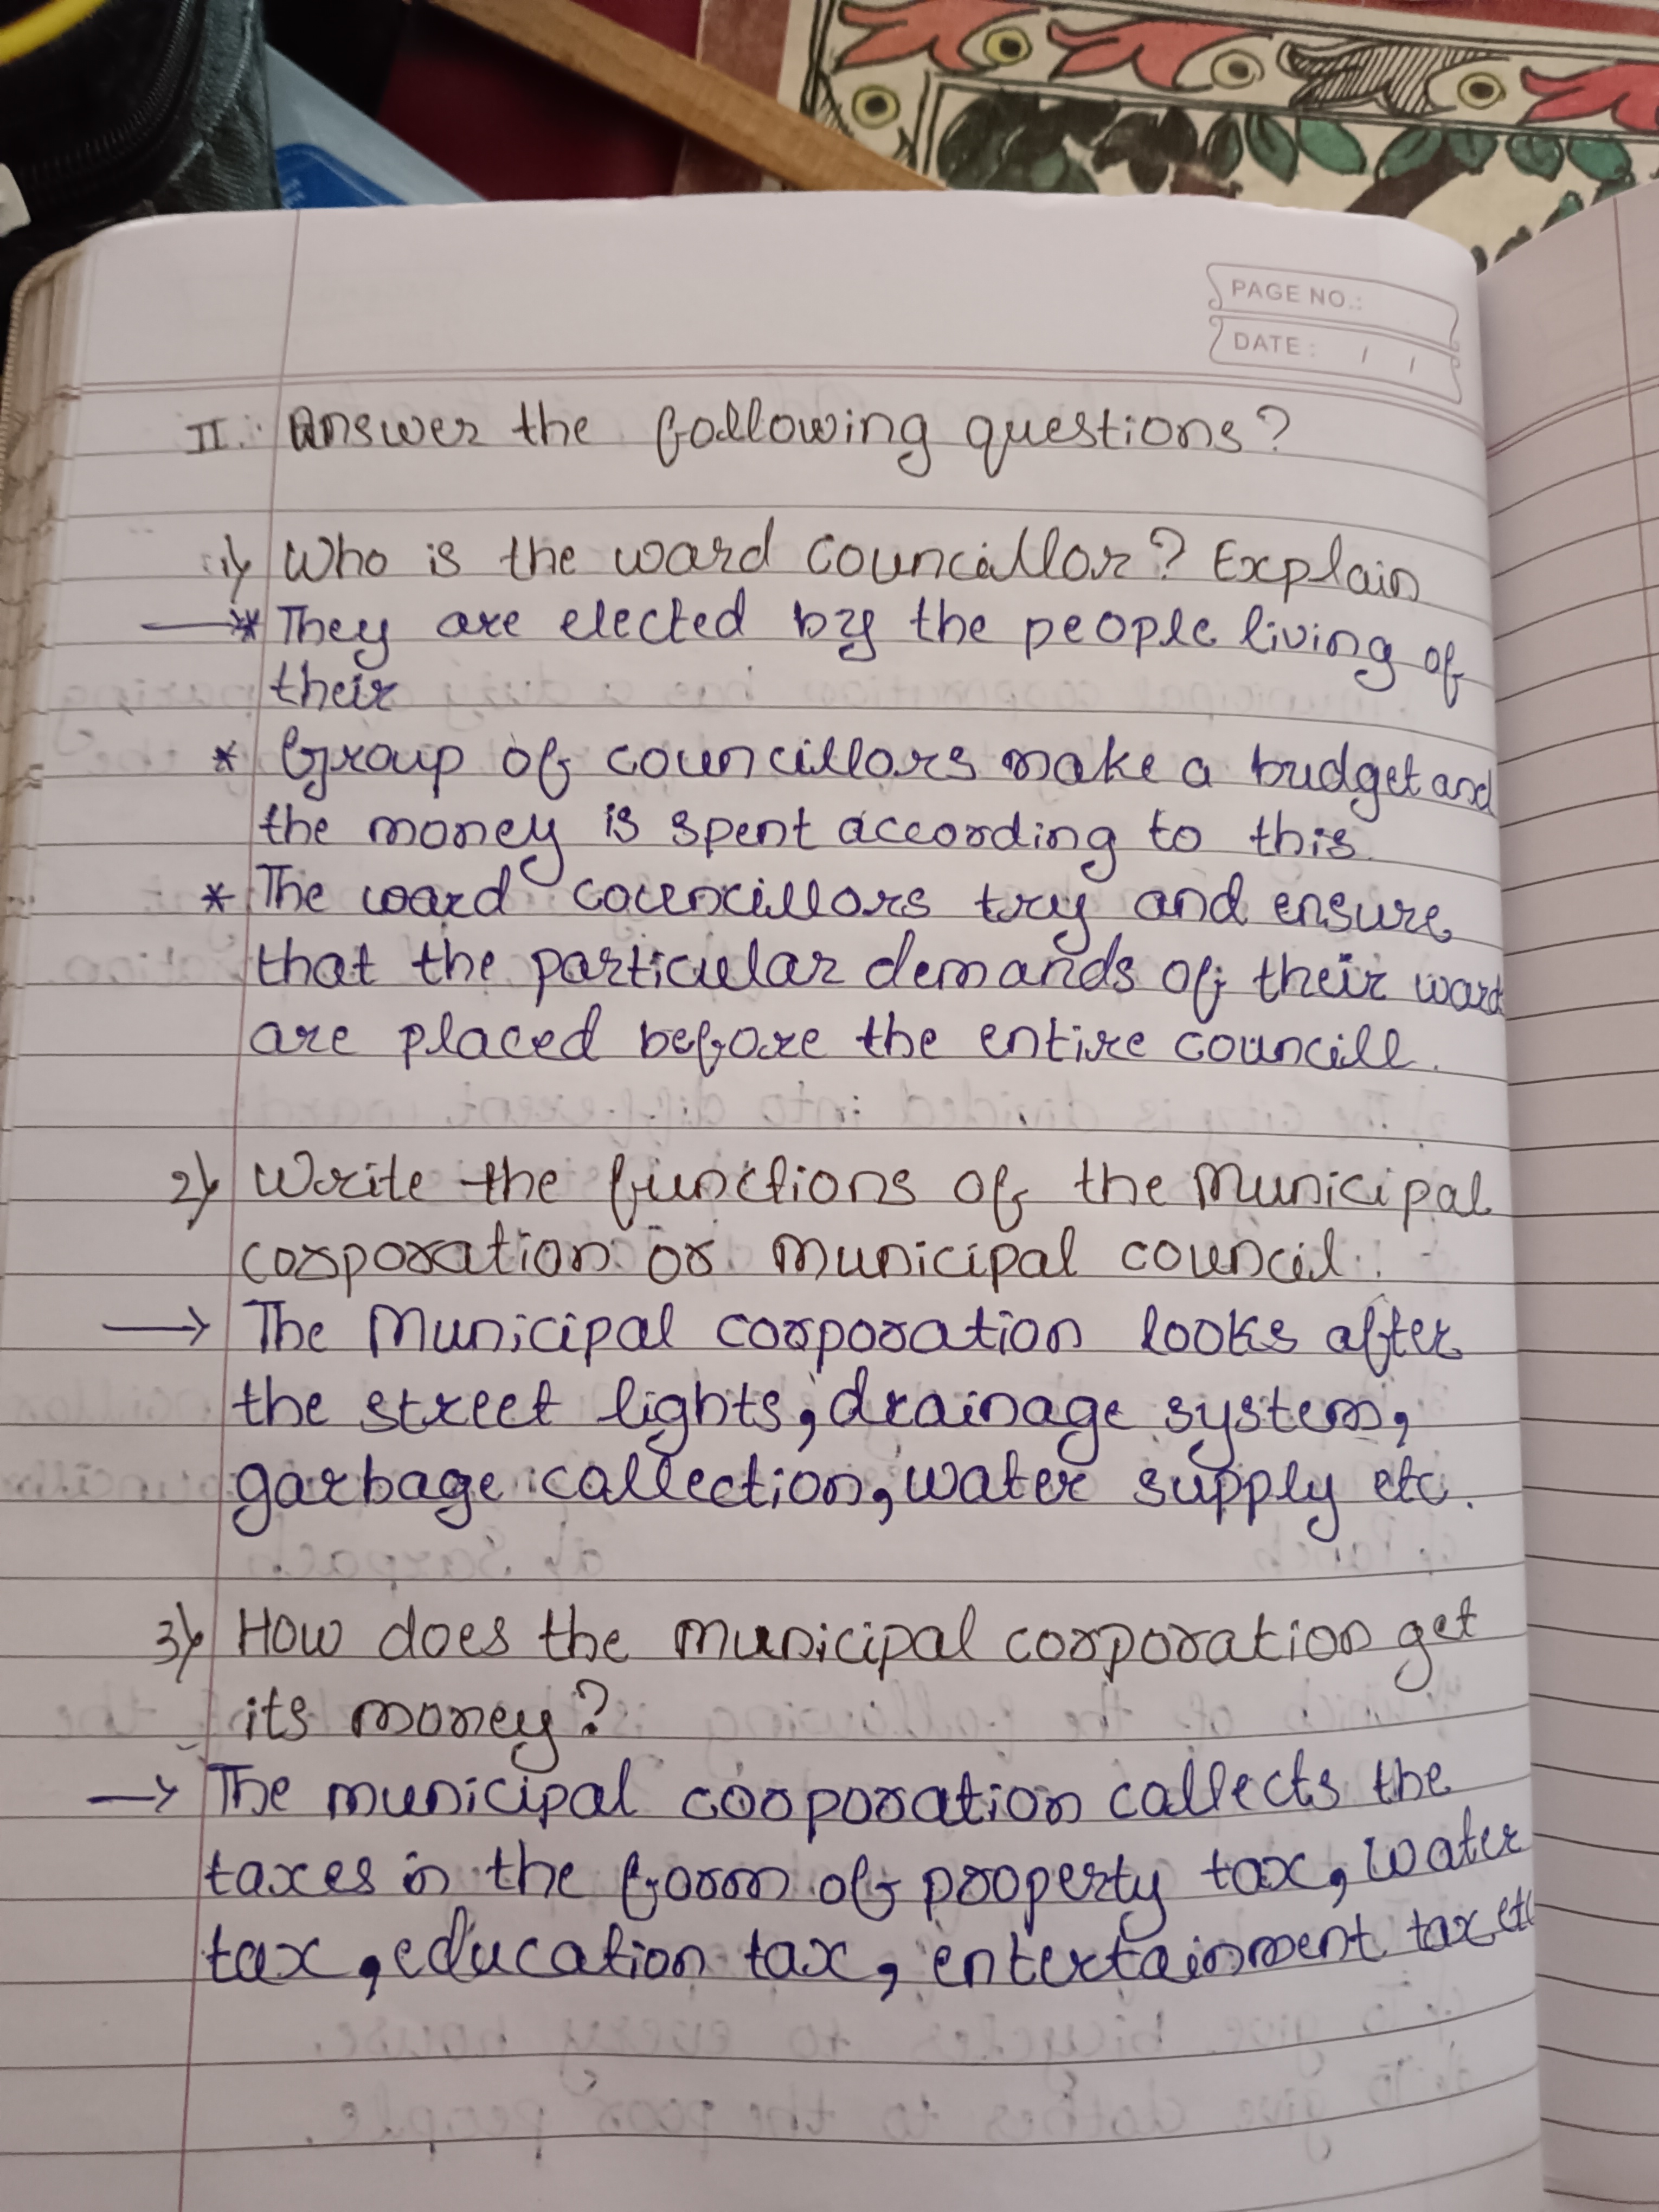 PAGE NO.:
DATE: / /
II. Answer the following questions?
1) Who is the ward councillor? Explain
→* They are elected by the people living of
their
* Group of councillors make a budget and
the money is spent according to this.
* The ward councillors try and ensure
that the particular demands of their ward
are placed before the entire councill.
2) Write the functions of the Municipal
corporation or municipal council.
→ The Municipal corporation looks after
the street lights, drainage system,
garbage collection, water supply etc.
3) How does the municipal corporation get
its money?
→ The municipal corporation collects the
taxes in the form of property tax, water
tax, education tax, entertainment tax etc